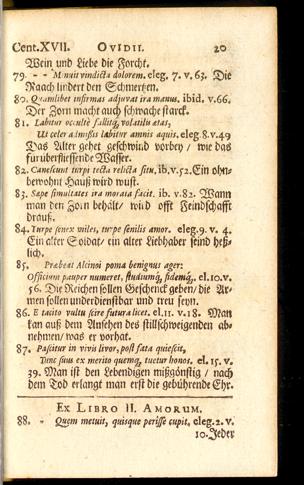 Cent. XVII. OVIDII. 20
Wein und Liebe die Forcht.
79. - - Minuit vindicta dolorem. eleg. 7. v. 63. Die
Raach lindert den Schmertzen.
80. Quamlibet infirmas adjuvat ira manus. ibid. v. 66.
Der Zorn macht auch schwache starck.
81. Labitur occultè fallitq́; volatilis etas,
Ut celer admissis labitur amnis aquis. eleg. 8. v. 49
Das Alter gehet geschwind vorbey / wie das
fürüberfliessende Wasser.
82. Canescunt turpi tecta relicta situ, ib. v. 52. Ein ohn-
bewohnt Hauß wird wust.
83. Sæpe simultates ira morata facit. ib. v. 82. Wann
man den Zorn behält / wird offt Feindschafft
drauß.
84. Turpe senex miles, turpe senilis amor. eleg. 9. v. 4.
Ein alter Soldat / ein alter Liebhaber seind heß-
lich.
85. Præbeat Alcinoi poma benignus ager;
Officium pauper numeret, studiumq́; fidemq́;. el. 10. v.
56. Die Reichen sollen Geschenck geben / die Ar-
men sollen underdienstbar und treu seyn.
86. E tacito vultu scire futura licet. el. 11. v. 18. Man
kan auß dem Ansehen des stillschweigenden ab-
nehmen / was er vorhat.
87. Pascitur in vivis livor, post fata quiescit,
Tunc suus ex merito quemq́; tuetur honos. el. 15. v.
39. Man ist den Lebendigen mißgönstig / nach
dem Tod erlangt man erst die gebührende Ehr.
EX LIBRO II. AMORUM.
88. - Quem metuit, quisque perisse cupit, eleg. 2. v.
10. Jeder